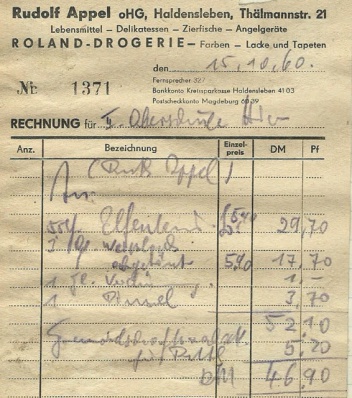 Rudolf Appel oHG, Haldensleben, Thälmannstr. 21
Lebensmittel — Delikatessen — Zierfische — Angelgeräte
ROLAND-DROGERIE — Farben — Lacke und Tapeten
den 15.10.60.
Nr. 1371
Fernsprecher 327
Bankkonto Kreissparkasse Haldensleben 4103
Postscheckkonto Magdeburg
RECHNUNG für Oberschule
Anz. Bezeichnung Einzel-preis DM Pf
(Rud. Appel)
An
Elfenbein 5,40 29,70
3 kg abgetönt 5,90 17,70
1 1,—
1 Pinsel 3,70
52,10
5,20
DM 46,90